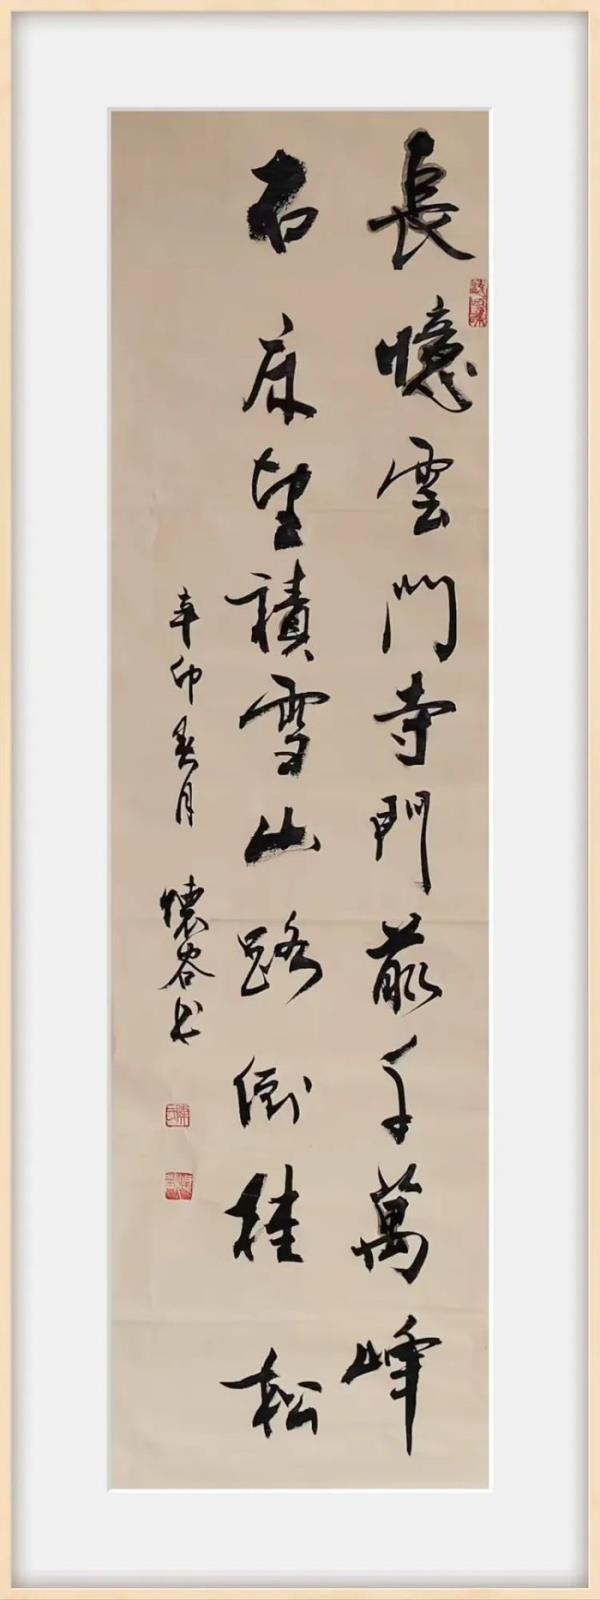 長憶雲門寺門前千萬峰
石床望積雪山路倒挂松
辛卯春月 懷容书